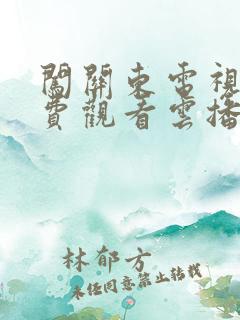 闖關東電視
費觀看雲播
林郁方
未经同意禁止转载